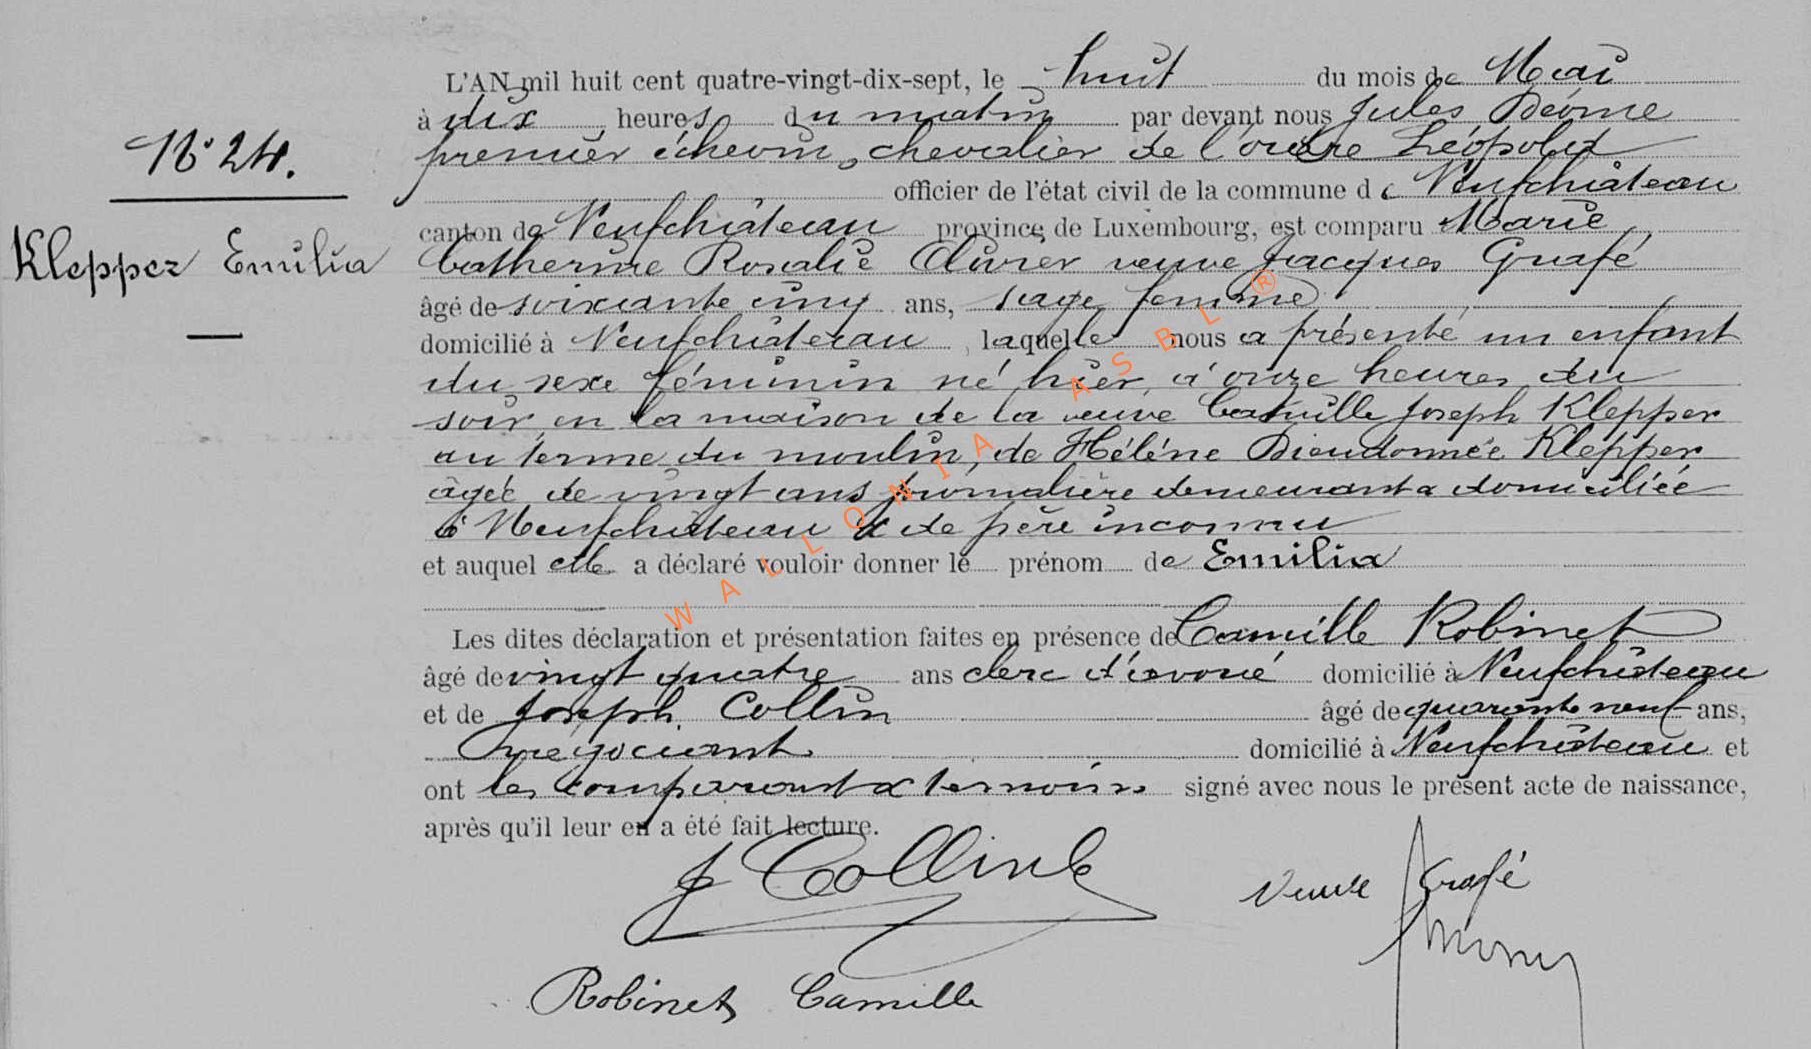 L'AN mil huit cent quatre-vingt-dix-sept, le huit du mois de Mai
à dix heures du matin par devant nous Jules
premier échevin, chevalier de l'ordre Léopold
officier de l'état civil de la commune de Neufchâteau
N° 24.
canton de Neufchâteau province de Luxembourg, est comparu Marie
Klepper Emilia
Catherine Rosalie Olivier veuve Jacques Grafé
âgé de soixante cinq ans, sage femme
domicilié à Neufchâteau, laquelle nous a présenté un enfant
du sexe féminin né hier, à onze heures du
soir en la maison de la veuve Camille Joseph Klepper
au terme du moulin, de Hélène Dieudonnée Klepper
âgée de vingt ans journalière demeurant & domiciliée
à Neufchâteau & de père inconnu
et auquel elle a déclaré vouloir donner le prénom de Emilia
Les dites déclaration et présentation faites en présence de Camille Robinet
âgé de vingt quatre ans clerc d'avoué domicilié à Neufchâteau
et de Joseph Collin âgé de quarante neuf ans,
négociant domicilié à Neufchâteau et
ont les comparant & témoins signé avec nous le présent acte de naissance,
après qu'il leur en a été fait lecture.
J Collin
Veuve Grafé
Robinet Camille
WALLONIA ASBL ®